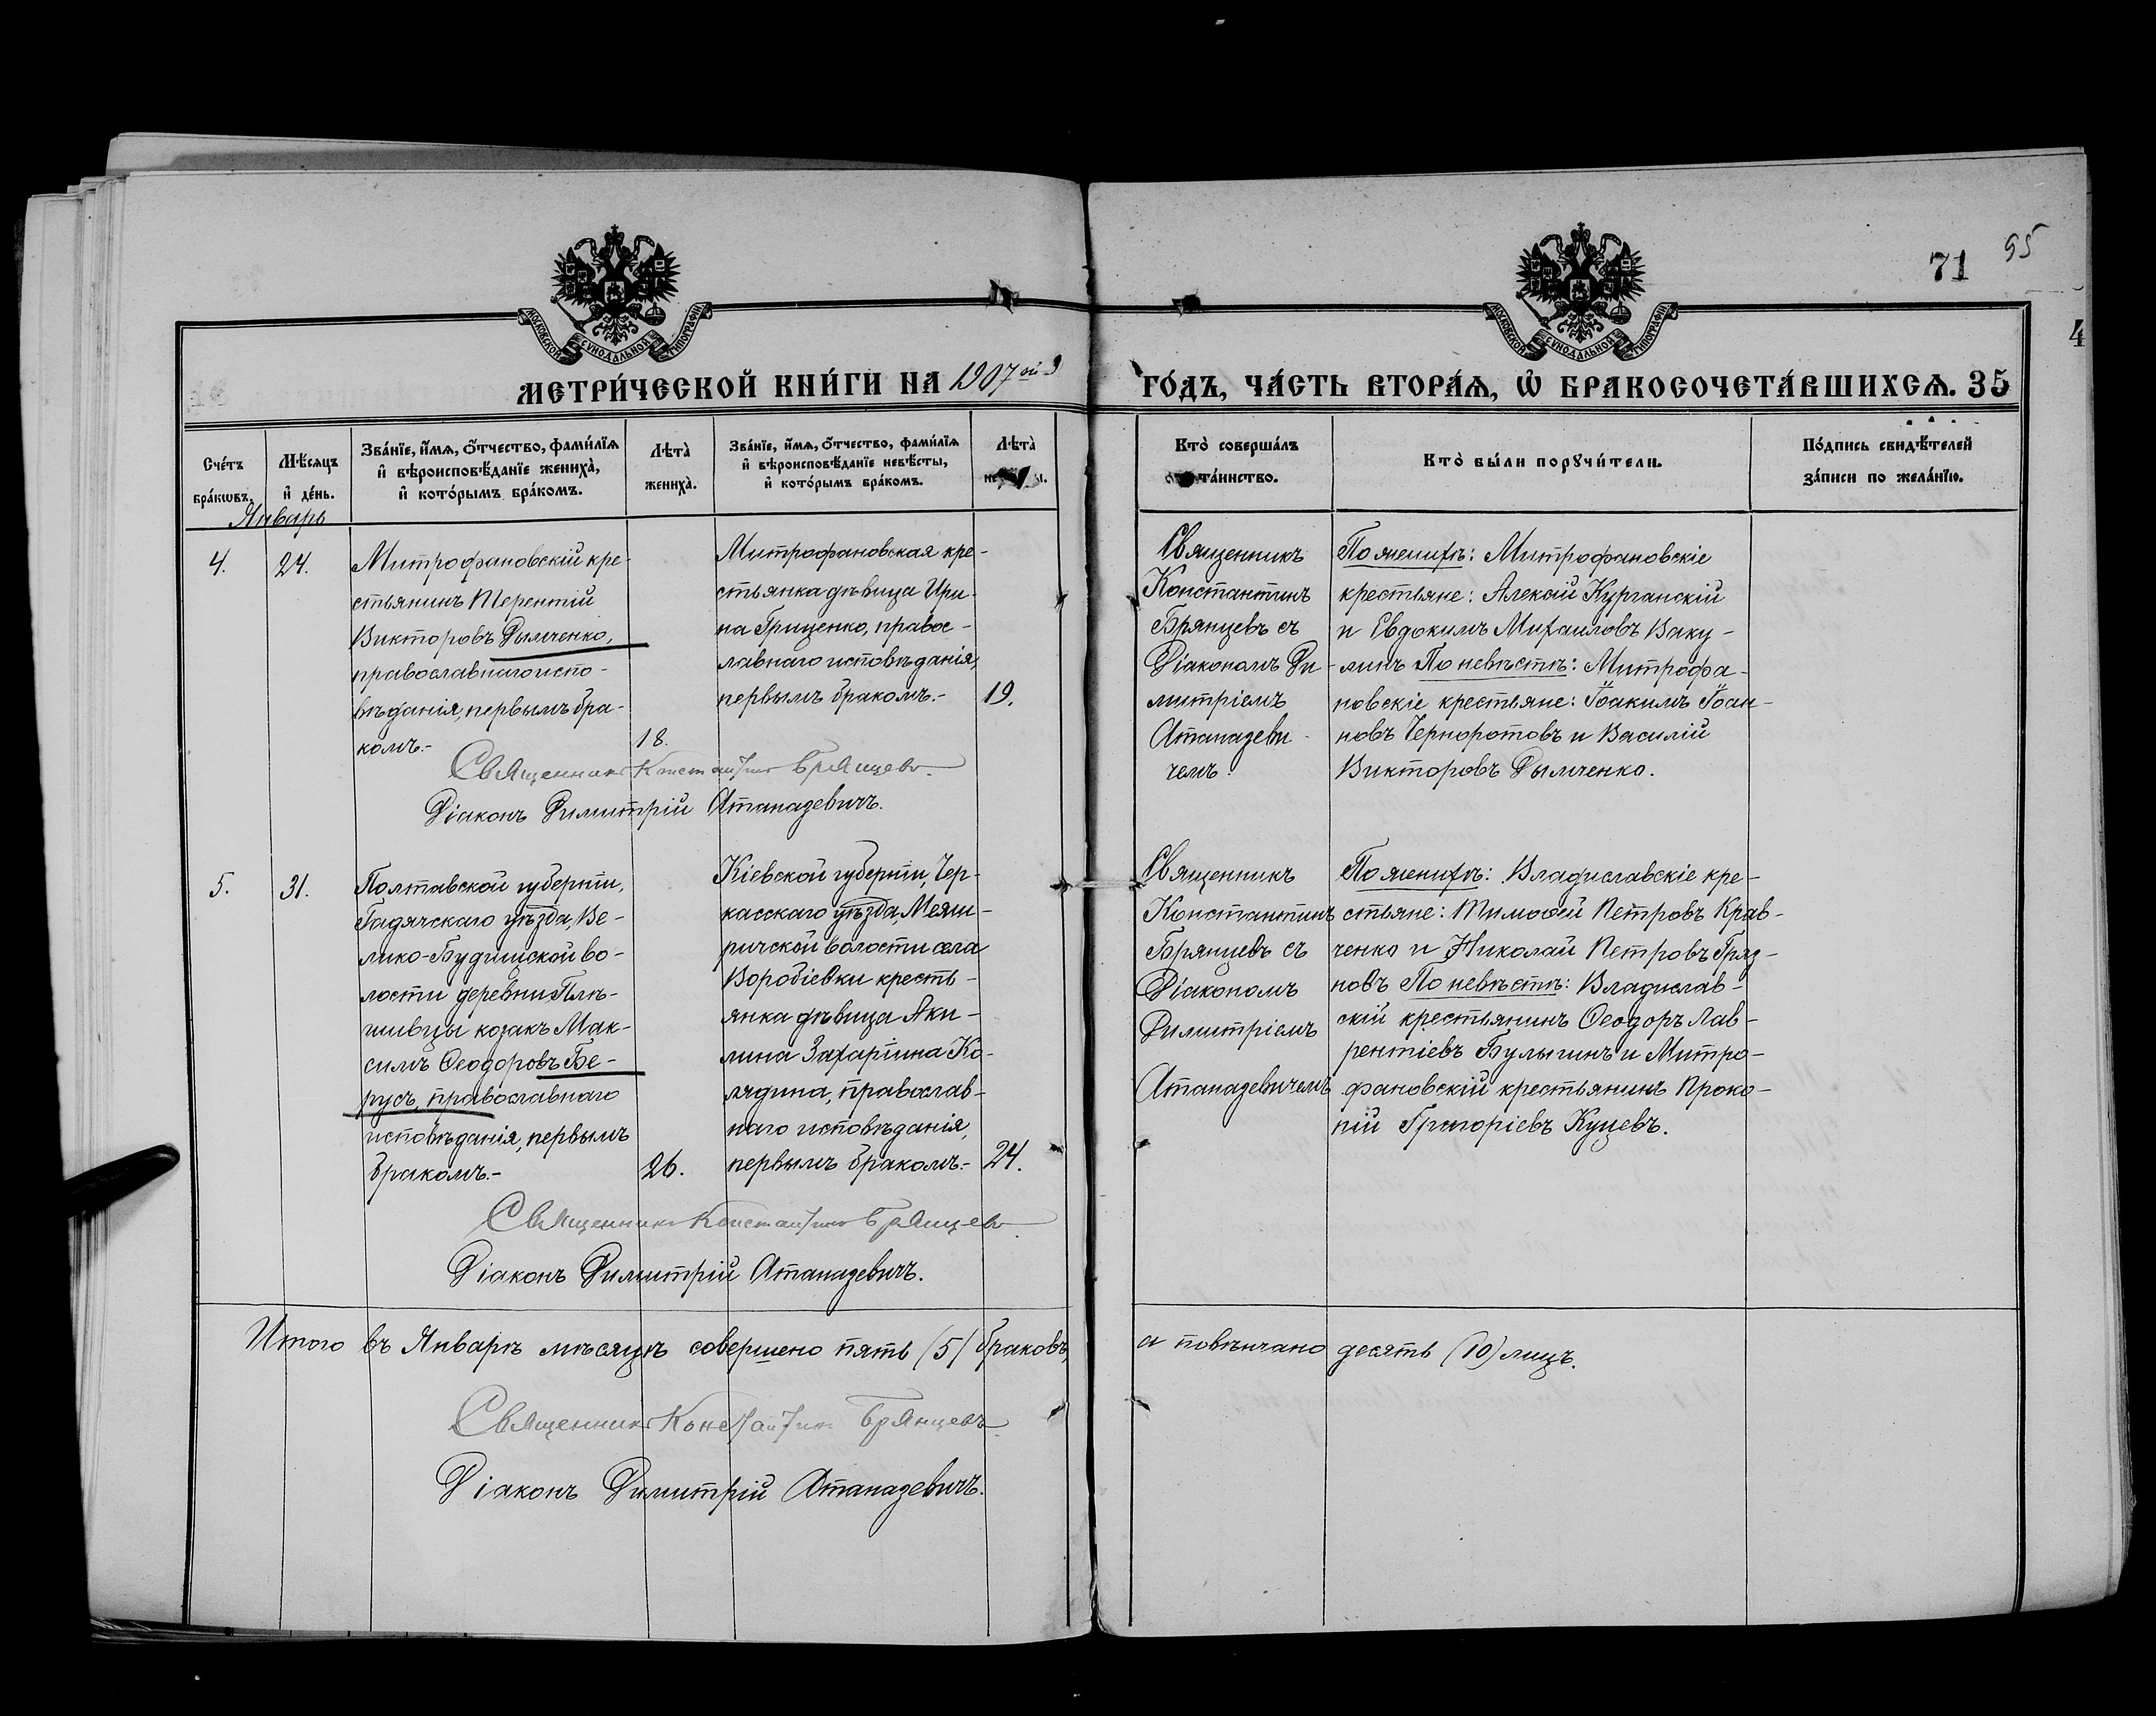 71
95
4
МОСКОВСКОЙ СѴНОДАЛЬНОЙ ТИПОГРАФІИ
МОСКОВСКОЙ СѴНОДАЛЬНОЙ ТИПОГРАФІИ
МЕТРИ́ЧЕСКОЙ КНИ́ГИ НА 1907 ой
ГО́ДЪ, ЧА́СТЬ ВТОРА́Ѧ, Ѡ҆ БРАКОСОЧЕТА́ВШИХСѦ. 35
Сче́тъ
бра́кѡвъ.
Мѣ́сяцъ
и҆ де́нь.
Зва́нїе, и҆́мѧ, ѻ҆́тчество, фами́лїѧ
и҆ вѣроисповѣ́данїе жениха̀,
и҆ кото́рымъ бра́комъ.
Лѣта̀
жениха̀.
Зва́нїе, и҆́мѧ, ѻ҆́тчество, фами́лїѧ
и҆ вѣроисповѣ́данїе невѣ́сты,
и҆ кото́рымъ бра́комъ.
Лѣта̀
Кто̀ соверша́лъ
та́инство.
Кто̀ бы́ли порꙋчи́тели.
По́дпись свидѣ́телей
за́писи по жела́нїю.
Январь
4.
24.
Митрофановскій кре-
стьянинъ Терентій
Викторовъ Дымченко,
православнаго испо-
вѣданія, первымъ бра-
комъ.-
18.
Митрофановская кре-
стьянка дѣвица Ири-
на Гриценко, правос-
лавнаго исповѣданія,
первымъ бракомъ.-
19.
Священникъ
Константинъ
Брянцевъ съ
Діакономъ Ди-
митріемъ
Атаназеви-
чемъ.
По женихѣ: Митрофановскіе
крестьяне: Алексѣй Курганскій
и Евдокимъ Михаиловъ Ваку-
линъ По невѣстѣ: Митрофа-
новскіе крестьяне: Іоакимъ Іоан-
новъ Черноротовъ и Василій
Викторовъ Дымченко.
Священникъ Константинъ Брянцевъ.
Діаконъ Димитрій Атаназевичъ.
5.
31.
Полтавской губерніи,
Гадячскаго уѣзда, Ве-
лико-Будищской во-
лости деревни Плѣ-
шивцы козакъ Мак-
симъ Ѳеодоровъ Бе-
русъ, православнаго
исповѣданія, первымъ
бракомъ.-
26.
Кіевской губерніи, Чер-
касскаго уѣзда, Межи-
ричской волости села
Воробіевки кресть-
янка дѣвица Аки-
лина Захаріина Ко-
лядина, православ-
наго исповѣданія,
первымъ бракомъ.-
24.
Священникъ
Константинъ
Брянцевъ съ
Діакономъ
Димитріемъ
Атаназевичемъ
По женихѣ: Владиславскіе кре-
стьяне: Тимоѳей Петровъ Крав-
ченко и Николай Петровъ Гряз-
новъ По невѣстѣ: Владислав-
скій крестьянинъ Ѳеодоръ Лав-
рентіевъ Булыгинъ и Митро-
фановскій крестьянинъ Проко-
пій Григоріевъ Куцевъ.
Священникъ Константинъ Брянцевъ.
Діаконъ Димитрій Атаназевичъ.
Итого въ Январѣ мѣсяцѣ совершено пять (5) браковъ,
а повѣнчано десять (10) лицъ.
Священникъ Константинъ Брянцевъ
Діаконъ Димитрій Атаназевичъ.